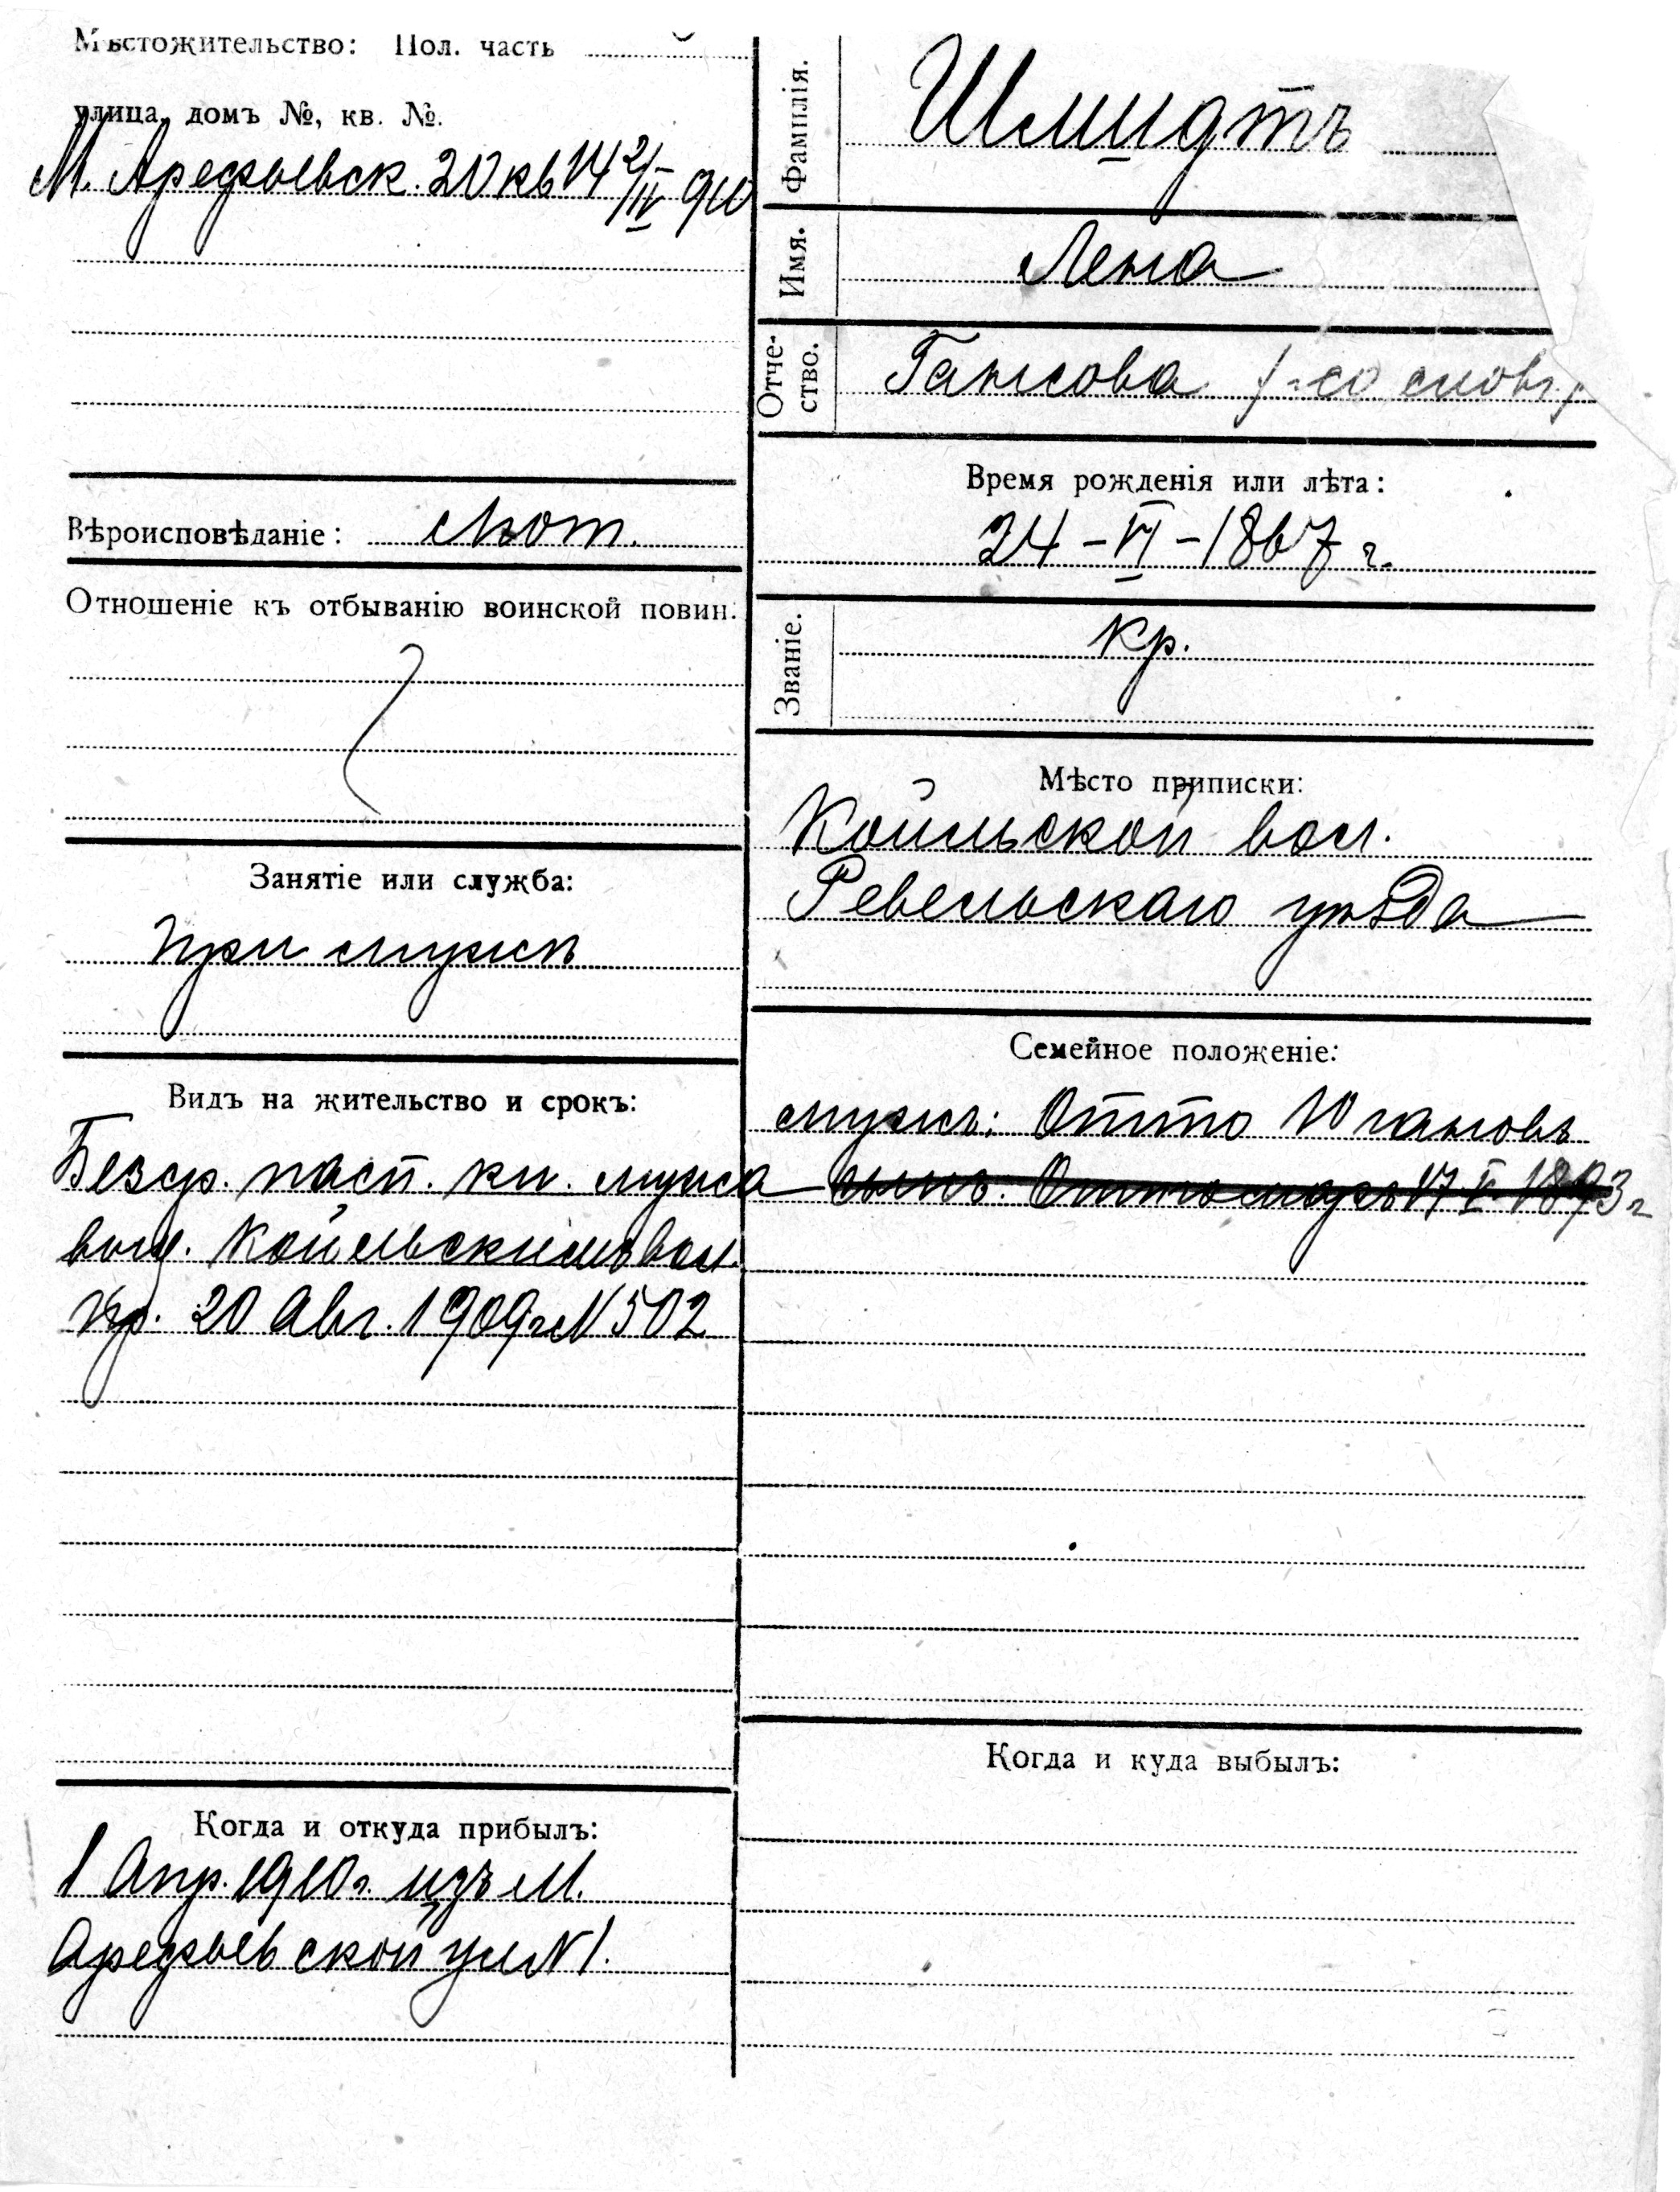 Мѣстожительство: Пол. часть
улица, домъ №, кв. №.
М. Арефьевск. 20 кв 14 2/IV 910
Вѣроисповѣданіе: лют.
Отношеніе къ отбыванію воинской повин.
Занятіе или служба:
при мужѣ
Видъ на жительство и срокъ:
Безср. пасп. кн. мужа
выд. Койльскимъ вол.
пр. 20 Авг. 1909 г N 502
Когда и откуда прибылъ:
1 Апр. 1910 г. изъ М.
Арефьевской ул N 1.
Фамилія. Шмидтъ
Имя. Лена
Отче-
ство. Гансова (со словъ)
Время рожденія или лѣта:
24-VI-1867 г.
Званіе. кр.
Мѣсто приписки:
Койльской вол.
Ревельскаго уѣзда
Семейное положеніе:
мужъ: Отто Югановъ
сынъ: 17 V 1893 г
Когда и куда выбылъ: